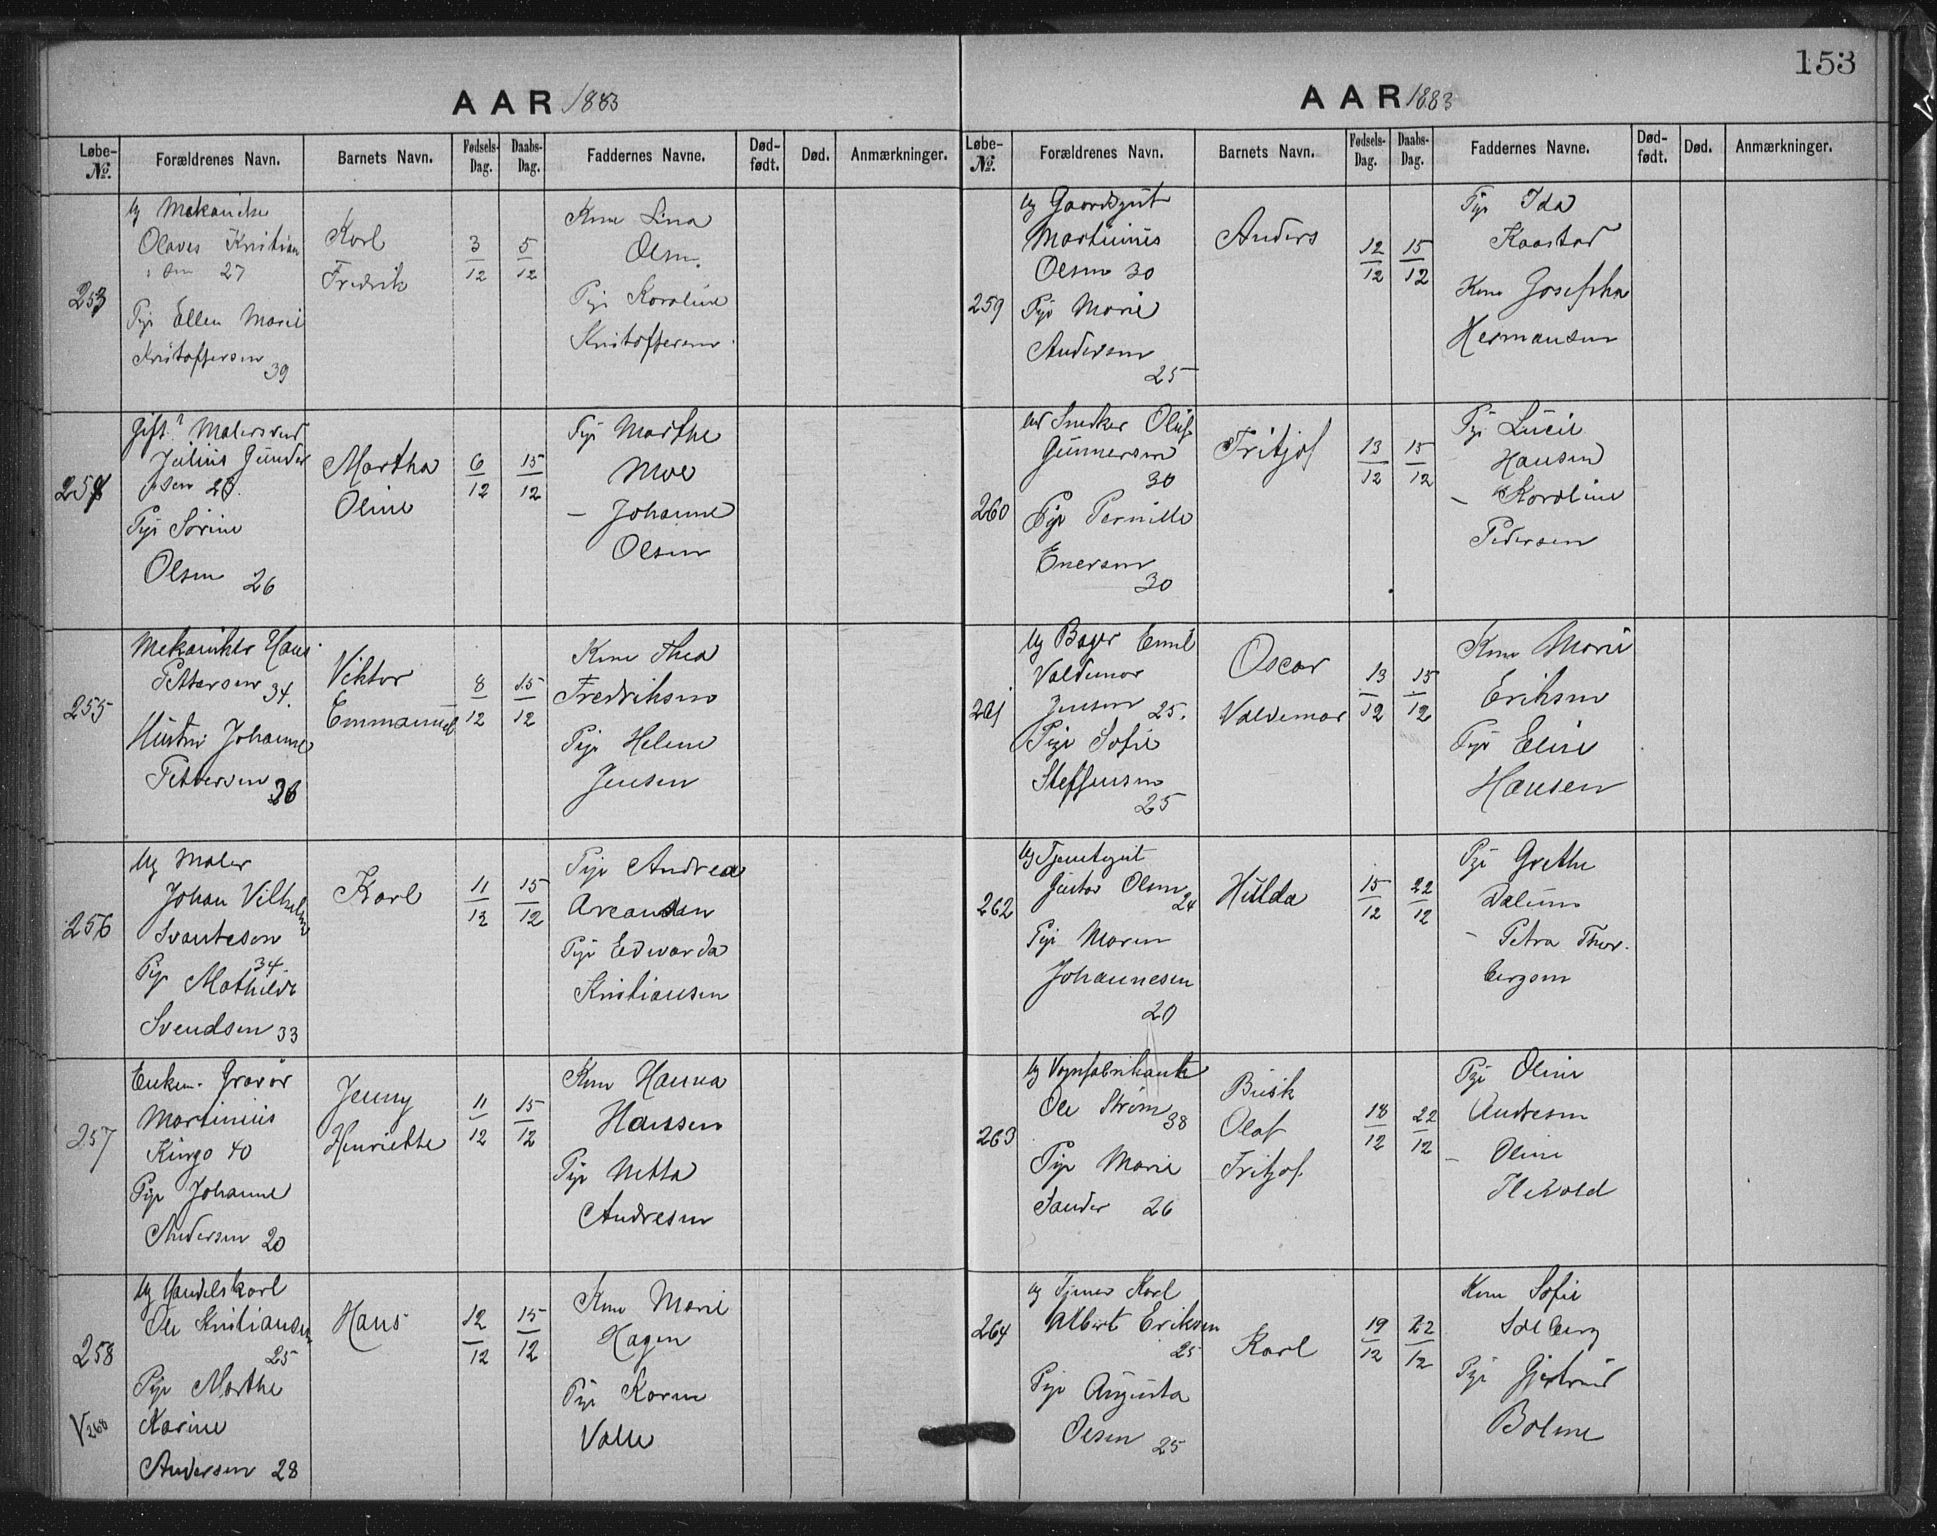 153
AAR 1883
Løbe-№. Forældrenes Navn. Barnets Navn. Fødsels-Dag. Daabs-Dag. Faddernes Navne. Død-født. Død. Anmærkninger.
253
Ug Mekaniker
Olaves Kristian
sen 27
Pige Ellen Marie
Kristoffersen
39
Karl
Fredrik
3/12
5/12
Kone Lina
Olsen
Pige Karoline
Kristoffersen
254
Gift? Malersvend
Julius Gunder
sen
Pige Sørine
Olsen 26
Martha
Oline
6/12
15/12
Pige Marthe
Moe
– Johanne
Olsen
255
Mekaniker Hans
Pettersen 34.
Hustru Johanne
Pettersen 36
Viktor
Emmanuel
8/12
15/12
Kone Thea
Fredriksen
Pige Helene
Jensen
256
Ug Maler
Johan Vilhelm
Svantesen
34
Pige Mathilde
Svendsen 33
Karl
11/12
15/12
Pige Andrea
Pige Edvarda
Kristiansen
257
Enkem. Gravør
Martinius
Kingo 40
Pige Johanne
Andersen 20
Jenny
Henriette
11/12
15/12
Kone Hanna
Hanssen
Pige Netta
Andresen
258
V 268
Ug Handelskarl
Ole Kristiansen
25
Pige Marthe
Karine
Andersen 28
Hans
12/12
15/12
Kone Marie
Hagen
Pige Karen
Valle
AAR 1883
Løbe-№. Forældrenes Navn. Barnets Navn. Fødsels-Dag. Daabs-Dag. Faddernes Navne. Død-født. Død. Anmærkninger.
259
Ug Gaardsgut
Martinius
Olsen 30
Pige Marie
Andersen
25
Anders
12/12
15/12
Pige Ida
Kaastad
Kone Josefha
Hermansen
260
Snedker Oluf
Gunnersen
30
Pige Pernille
Enersen
30
Fritjof
13/12
15/12
Pige Lucie
Hansen
– Karoline
Pedersen
261
Ug Bager Emil
Valdemar
Jensen 25.
Pige Sofie
Steffensen
25
Oscar
Valdemar
13/12
15/12
Kone Marie
Eriksen
Pige Elise
Hansen
262
Ug Tjenstgut
Gustav Olsen
24
Pige Maren
Johannesen
20
Hulda
15/12
22/12
Pige Grethe
Dalum
– Petra Thor-
bergsen
263
Ug Vognfabrikant
Ole Strøm
38
Pige Marie
Sander 26
Busk
Olaf
Fritjof
18/12
22/12
Pige Oline
Andresen
– Oline
264
Ug Tjener Karl
Albert Eriksen
25
Pige Augusta
Olsen 25
Karl
19/12
22/12
Kone Sofie
Solberg
Pige Gjertrud
Bolme